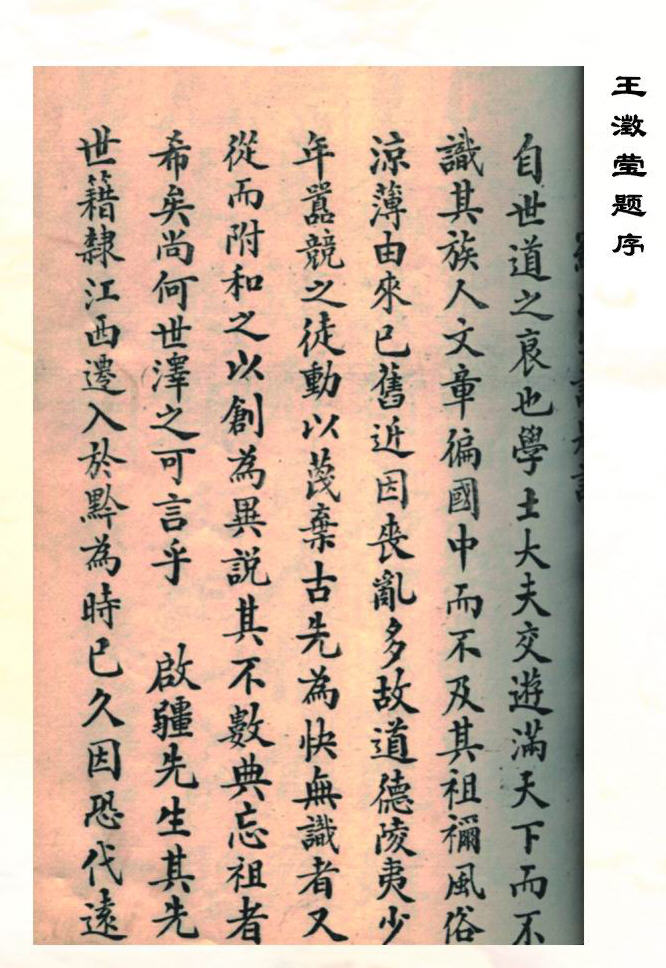 王澂莹题序
自世道之衰也學士大夫交遊滿天下而不
識其族人文章徧國中而不及其祖禰風俗
涼薄由來已舊近因喪亂多故道德陵夷少
年囂競之徒動以蔑棄古先為快無識者又
從而附和之以創為異説其不數典忘祖者
希矣尚何世澤之可言乎 啟疆先生其先
世籍隸江西遷入於黔為時已久因恐代遠